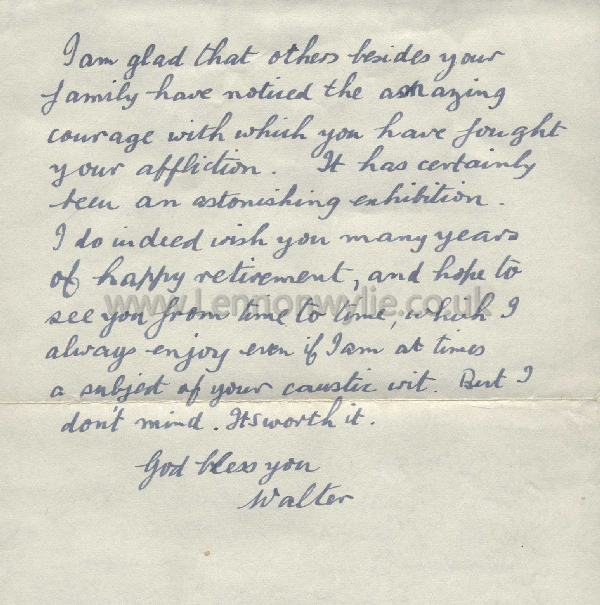 I am glad that others besides your
family have noticed the amazing
courage with which you have fought
your affliction. It has certainly
been an astonishing exhibition.
I do indeed wish you many years
of happy retirement, and hope to
www.Lennonwylie.co.uk
see you from time to time, which I
always enjoy even if I am at times
a subject of your caustic wit. But I
don't mind. Its worth it.
God bless you
Walter